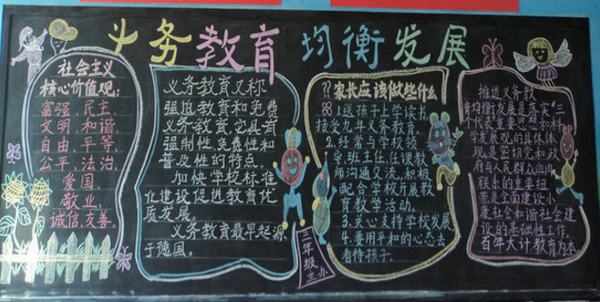 义务教育 均衡发展
社会主义
核心价值观:
富强,民主,
文明,和谐,
自由,平等,
公平,法治,
爱国,
敬业,
诚信,友善。
义务教育又称
强迫教育和免费
义务教育,它具有
强制性,免费性和
普及性的特点。
加快学校标准
化建设促进教育优
质发展。
义务教育最早起源
于德国。
三年级主办
??家长应该做些什么
1.送孩子上学读书
接受九年义务教育。
2.经常与学校领
导班主任任课教
师沟通交流,积极
配合学校开展教
育教学活动。
3.关心支持学校发展
4.要用平和的心态去
看待孩子。
推进义务教
育均衡发展是落实"三
个代表"重要思想和科
学发展观的具体体
现,是密切党和政
府与人民群众血肉
联系的重要
是全面建设小
康社会和谐社会建
设的基础性工作。
百年大计教育为本。